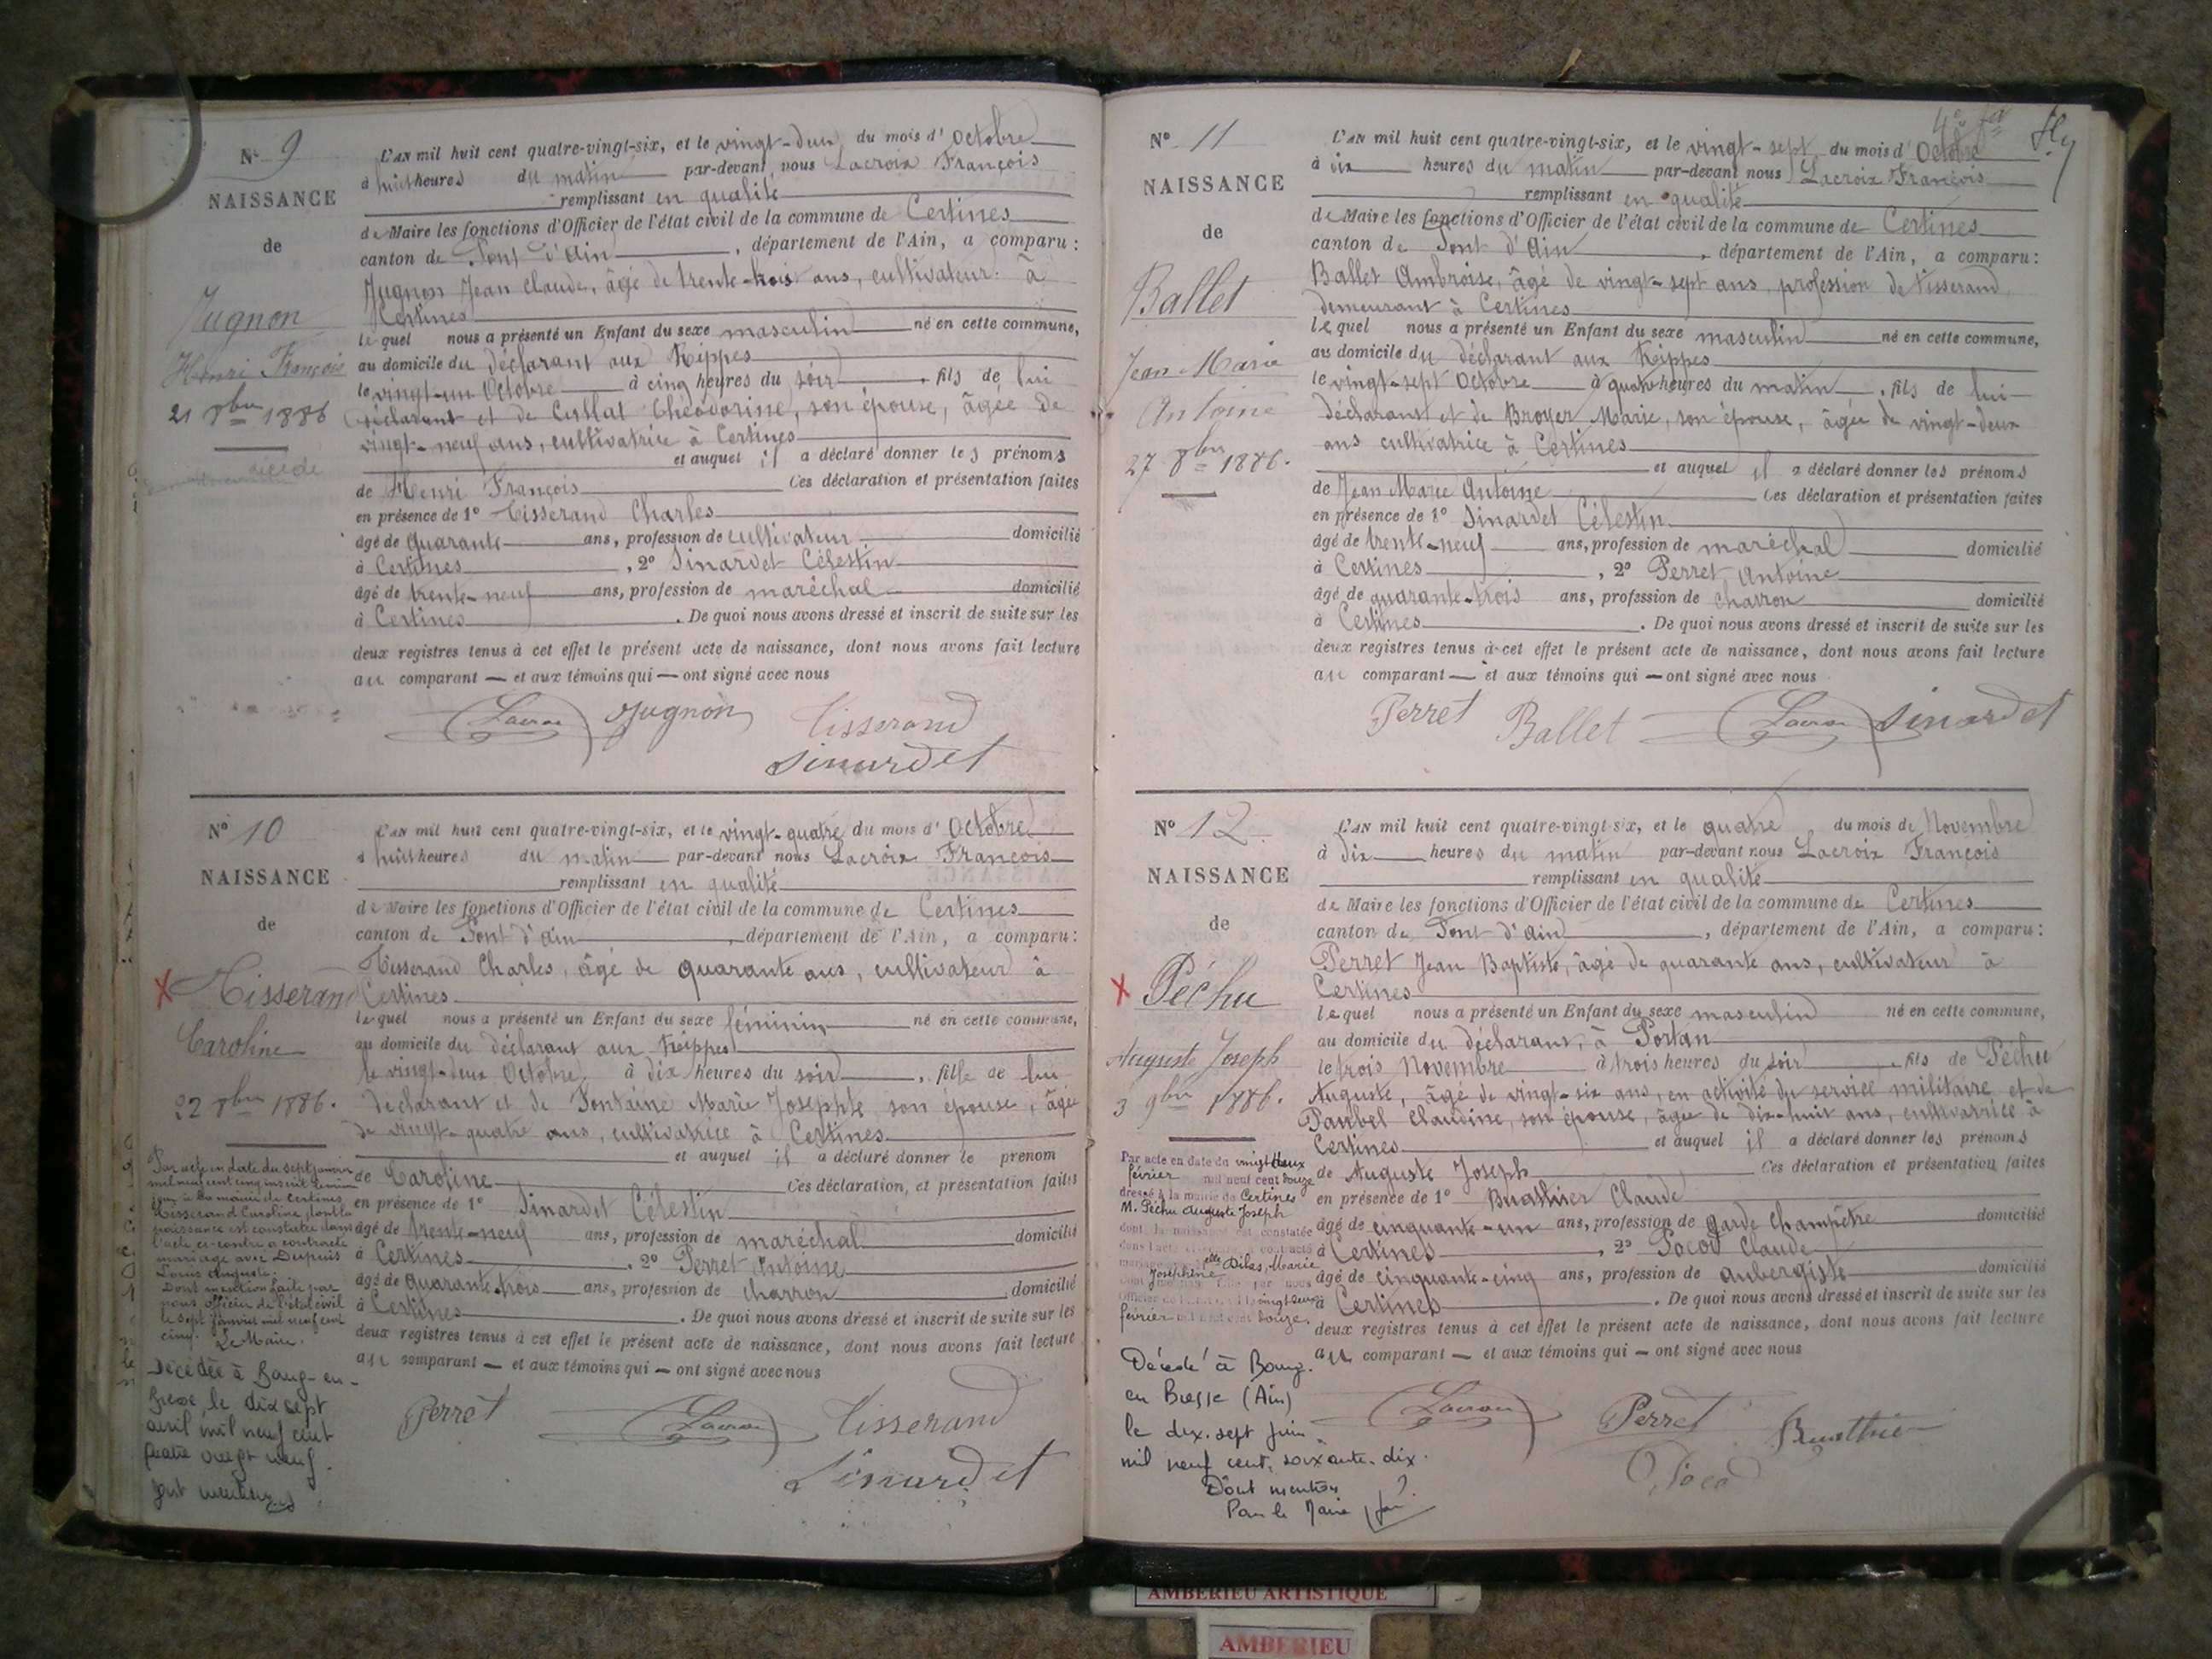 N° 9
NAISSANCE
de
Jugnon
Henri François
21 8bre 1886
L'AN mil huit cent quatre-vingt-six, et le vingt-deux du mois d'Octobre
à huit heures du matin par-devant nous Lacroix François
remplissant en qualité
de Maire les fonctions d'Officier de l'état civil de la commune de Certines
canton de Pont d'Ain, département de l'Ain, a comparu :
Jugnon Jean Claude, âgé de trente-trois ans, cultivateur à
Certines
lequel nous a présenté un Enfant du sexe masculin né en cette commune,
au domicile du déclarant aux Rippes
le vingt-un Octobre à cinq heures du soir, fils de lui
déclarant et de Cullat Théodorine, son épouse, âgée de
vingt-neuf ans, cultivatrice à Certines
et auquel il a déclaré donner les prénoms
de Henri François Ces déclaration et présentation faites
en présence de 1° Tisserand Charles
âgé de quarante ans, profession de cultivateur domicilié
à Certines, 2° Sinardet Célestin
âgé de trente-neuf ans, profession de maréchal domicilié
à Certines. De quoi nous avons dressé et inscrit de suite sur les
deux registres tenus à cet effet le présent acte de naissance, dont nous avons fait lecture
au comparant — et aux témoins qui — ont signé avec nous
Lacroix Jugnon Tisserand
Sinardet
N° 10
NAISSANCE
de
Tisserand
Caroline
22 8bre 1886.
Par acte en date du sept janvier
mil neuf cent cinq inscrit
à la mairie de Certines
Tisserand Caroline, dont la
naissance est constatée dans
l'acte ci-contre a contracté
mariage avec Dupuis
Louis Auguste.
Dont mention faite par
nous officier de l'état civil
le sept janvier mil neuf cent
cinq. Le Maire.
Décédée à Bourg-en-
Bresse le dix sept
avril mil neuf cent
quatre vingt neuf.
dont mention
L'AN mil huit cent quatre-vingt-six, et le vingt-quatre du mois d'Octobre
à huit heures du matin par-devant nous Lacroix François
remplissant en qualité
de Maire les fonctions d'Officier de l'état civil de la commune de Certines
canton de Pont d'Ain, département de l'Ain, a comparu :
Tisserand Charles, âgé de quarante ans, cultivateur à
Certines
lequel nous a présenté un Enfant du sexe féminin né en cette commune,
au domicile du déclarant aux Rippes
le vingt-deux Octobre, à dix heures du soir, fille de lui
déclarant et de Fontaine Marie Josephte son épouse, âgée
de vingt-quatre ans, cultivatrice à Certines
et auquel il a déclaré donner le prénom
de Caroline Ces déclaration, et présentation faites
en présence de 1° Sinardet Célestin
âgé de trente-neuf ans, profession de maréchal domicilié
à Certines, 2° Perret Antoine
âgé de quarante-trois ans, profession de charron domicilié
à Certines. De quoi nous avons dressé et inscrit de suite sur les
deux registres tenus à cet effet le présent acte de naissance, dont nous avons fait lecture
au comparant — et aux témoins qui — ont signé avec nous
Perret Lacroix Tisserand
Sinardet
N° 11
NAISSANCE
de
Ballet
Jean Marie
Antoine
27 8bre 1886.
L'AN mil huit cent quatre-vingt-six, et le vingt-sept du mois d'Octobre
à six heures du matin par-devant nous Lacroix François
remplissant en qualité
de Maire les fonctions d'Officier de l'état civil de la commune de Certines
canton de Pont d'Ain, département de l'Ain, a comparu :
Ballet Ambroise, âgé de vingt-sept ans, profession de tisserand
demeurant à Certines
lequel nous a présenté un Enfant du sexe masculin né en cette commune,
au domicile du déclarant aux Rippes
le vingt-sept Octobre à quatre heures du matin, fils de lui
déclarant et de Broyer Marie, son épouse, âgée de vingt-deux
ans cultivatrice à Certines
et auquel il a déclaré donner les prénoms
de Jean Marie Antoine Ces déclaration et présentation faites
en présence de 1° Sinardet Célestin
âgé de trente-neuf ans, profession de maréchal domicilié
à Certines, 2° Perret Antoine
âgé de quarante-trois ans, profession de charron domicilié
à Certines. De quoi nous avons dressé et inscrit de suite sur les
deux registres tenus à cet effet le présent acte de naissance, dont nous avons fait lecture
au comparant — et aux témoins qui — ont signé avec nous
Perret Ballet Lacroix Sinardet
N° 12
NAISSANCE
de
Péchu
Auguste Joseph
3 9bre 1886.
Par acte en date du vingt deux
février mil neuf cent douze
dressé à la mairie de Certines
M. Péchu Auguste Joseph
dont la naissance est constatée
dans l'acte ci-contre a contracté
mariage avec elle Dilas, Marie
Joséphine
février mil neuf cent douze.
Décédé à Bourg-
en Bresse (Ain)
le dix-sept juin
mil neuf cent soixante-dix.
Dont mention
Pour le Maire
L'AN mil huit cent quatre-vingt-six, et le quatre du mois de Novembre
à dix heures du matin par-devant nous Lacroix François
remplissant en qualité
de Maire les fonctions d'Officier de l'état civil de la commune de Certines
canton de Pont d'Ain, département de l'Ain, a comparu :
Perret Jean Baptiste, âgé de quarante ans, cultivateur à
Certines
lequel nous a présenté un Enfant du sexe masculin né en cette commune,
au domicile du déclarant, à Portan
le trois Novembre à trois heures du soir, fils de Péchu
Auguste, âgé de vingt-six ans, en activité de service militaire et de
Claudine, son épouse, âgée de dix-huit ans, cultivatrice à
Certines et auquel il a déclaré donner les prénoms
de Auguste Joseph Ces déclaration et présentation faites
en présence de 1° Buathier Claude
âgé de cinquante-un ans, profession de garde champêtre domicilié
à Certines, 2° Pocod Claude
âgé de cinquante-cinq ans, profession de aubergiste domicilié
à Certines. De quoi nous avons dressé et inscrit de suite sur les
deux registres tenus à cet effet le présent acte de naissance, dont nous avons fait lecture
au comparant — et aux témoins qui — ont signé avec nous
Lacroix Perret Buathier
Pocod
AMBERIEU ARTISTIQUE
AMBERIEU